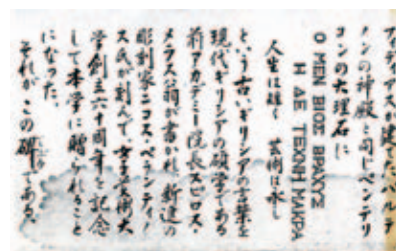 フィディアスが建てたパルテ
ノンの神殿と同じペンテリ
コンの大理石に
Ο ΜΕΝ ΒΙΟΣ ΒΡΑΧΥΣ
Η ΔΕ ΤΕΧΝΗ ΜΑΚΡΑ
人生は短く 芸術は永し
という古いギリシアの言葉を
現代ギリシアの碩学である
前アカデミー院長スピロス・
メラス翁が書かれ、新進の
彫刻家ニコス・ペランティノ
ス氏が刻んで女子芸術大
学創立六十周年を記念
して本学に贈られること
になった。
それがこの碑である。